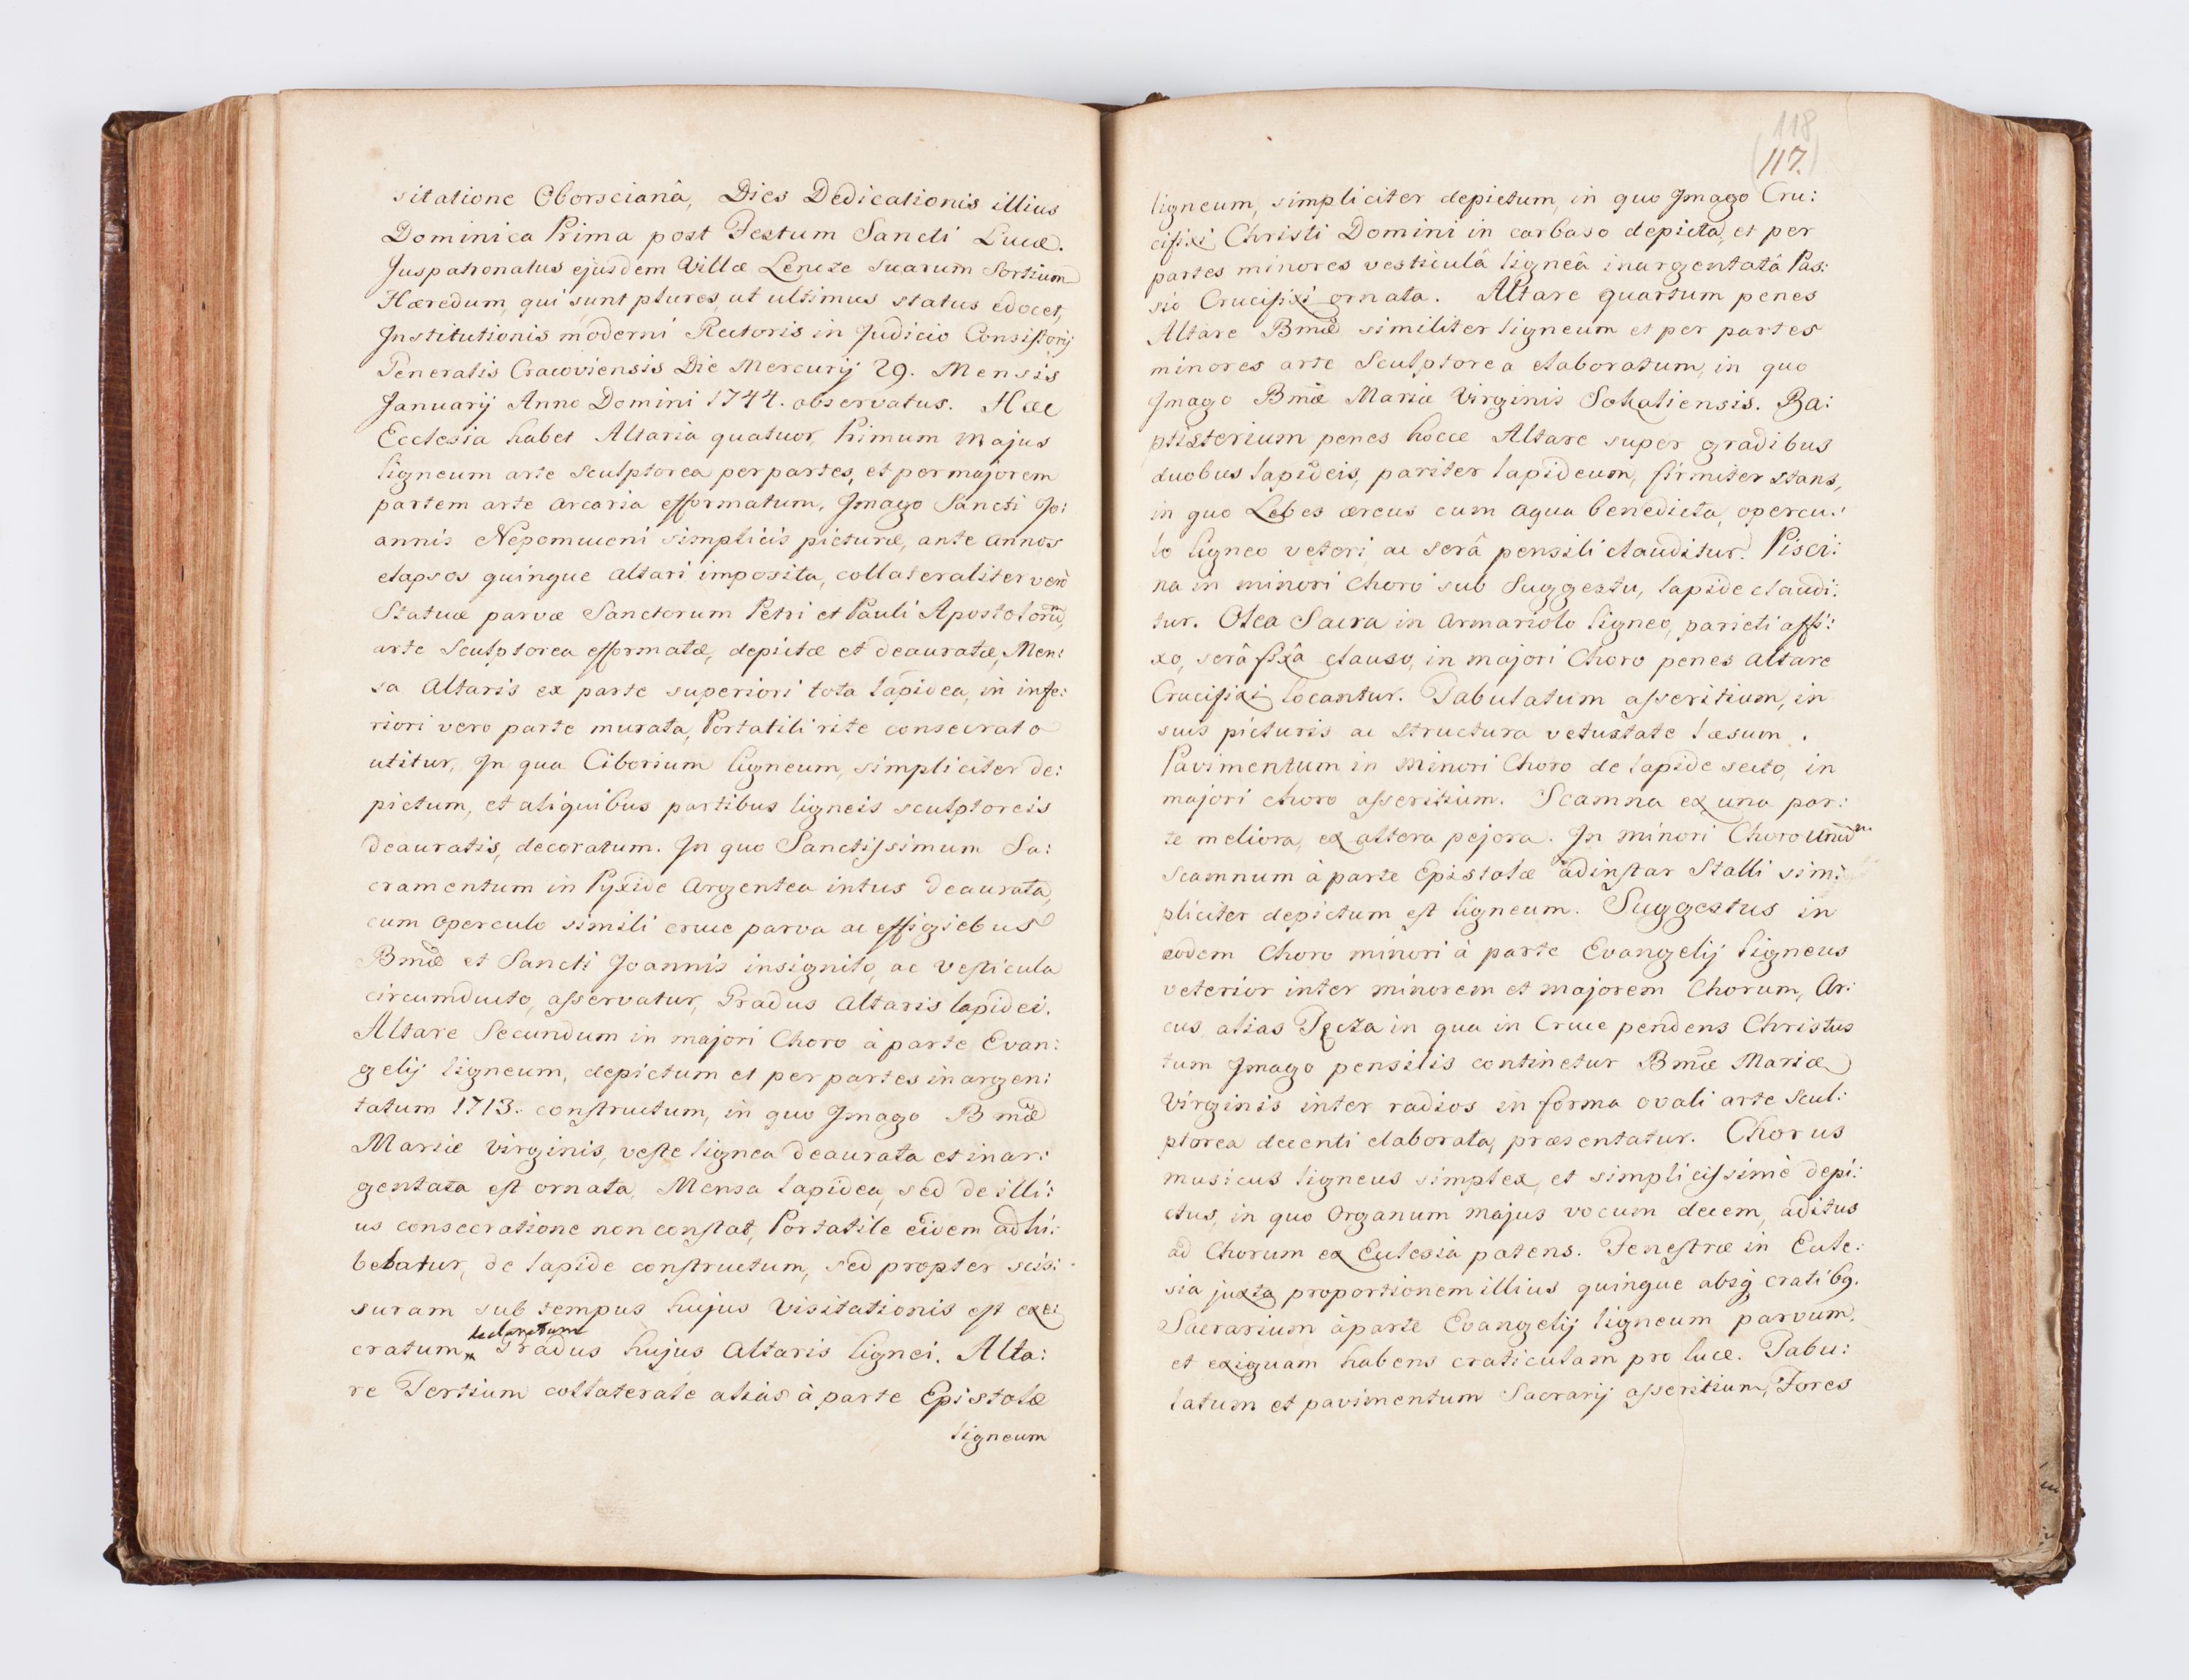 sitatione Oborscianâ, Dies Dedicationis illius
Dominica Prima post Festum Sancti Lucæ.
Juspatronatus ejusdem Villæ Lencze suarum Sortium
Hæredum, qui sunt plures, ut ultimus status edocet,
Institutionis moderni Rectoris in Judicio Consistorij
Generalis Cracoviensis Die Mercurij 29. Mensis
Januarij Anno Domini 1744. observatus. Hæc
Ecclesia habet Altaria quatuor, Primum Majus
ligneum arte Sculptorea per partes, et per majorem
partem arte Arcaria efformatum, Imago Sancti Jo:
annis Nepomuceni simplicis picturæ, ante Annos
elapsos quinque Altari imposita, collateraliter verò
Statuæ parvæ Sanctorum Petri et Pauli Apostolorũ,
arte Sculptorea efformatæ, depictæ et deauratæ, Men:
sa Altaris ex parte superiori tota lapidea, in infe:
riori vero parte murata, Portatili rite consecrato
utitur, In qua Ciborium ligneum, simpliciter de:
pictum, et aliquibus partibus ligneis sculptoreis
deauratis, decoratum. In quo Sanctissimum Sa:
cramentum in Pyxide Argentea intus deaurata,
cum Operculo simili cruce parva ac effigiebus
Bmæ et Sancti Joannis insignito, ac vesticula
circumducto, asservatur, Gradus Altaris lapidei.
Altare Secundum in majori Choro à parte Evan:
gelij ligneum, depictum et per partes inargen:
tatum 1713. constructum, in quo Imago Bmæ
Mariæ Virginis, veste lignea deaurata et inar:
gentata est ornata, Mensa lapidea, sed de illi:
us consecratione non constat, Portatile eidem adhi:
bebatur, de lapide constructum, sed propter scis:
suram sub tempus hujus Visitationis est exe:
declaratum
cratum Gradus hujus Altaris lignei. Alta:
re Tertium collaterale alias à parte Epistolæ
ligneum
118
(117.)
ligneum, simpliciter depictum, in quo Imago Cru:
cifixi Christi Domini in carbaso depicta, et per
partes minores vesticulâ ligneâ inargentatâ Pas:
sio Crucifixi ornata. Altare quartum penes
Altare Bmæ similiter ligneum et per partes
minores arte Sculptorea elaboratum, in quo
Imago Bmæ Mariæ Virginis Sokaliensis. Ba:
ptisterium penes hocce Altare super gradibus
duobus lapideis, pariter lapideum, firmiter stans,
in quo Lebes æreus cum Aqua benedicta, opercu:
lo ligneo veteri ac serâ pensili clauditur. Pisci:
na in minori Choro sub Suggestu, lapide claudi:
tur. Olea Sacra in Armariolo ligneo, parieti affi:
xo, serâ fixâ clauso, in majori Choro penes Altare
Crucifixi locantur. Tabulatum asseritium, in
suis picturis ac structura vetustate læsum.
Pavimentum in minori Choro de lapide secto, in
majori choro asseritium. Scamna ex una par:
te meliora, ex altera pejora. In minori Choro unũ
Scamnum à parte Epistolæ adinstar Stalli sim:
pliciter depictum est ligneum. Suggestus in
eodem Choro minori à parte Evangelij ligneus
veterior inter minorem et majorem Chorum, Ar:
cus alias Tęcza in qua in Cruce pendens Christus
tum Imago pensilis continetur Bmæ Mariæ
Virginis inter radios in forma ovali arte Scul:
ptorea decenti elaborata, præsentatur. Chorus
musicus ligneus simplex, et simplicissimè depi:
ctus, in quo Organum majus vocum decem, aditus
ad Chorum ex Ecclesia patens. Fenestræ in Eccle:
sia juxta proportionem illius quinque absq; cratibq.
Sacrarium à parte Evangelij ligneum parvum,
et exiguam habens craticulam pro luce. Tabu:
latum et pavimentum Sacrarij asseritium, Fores